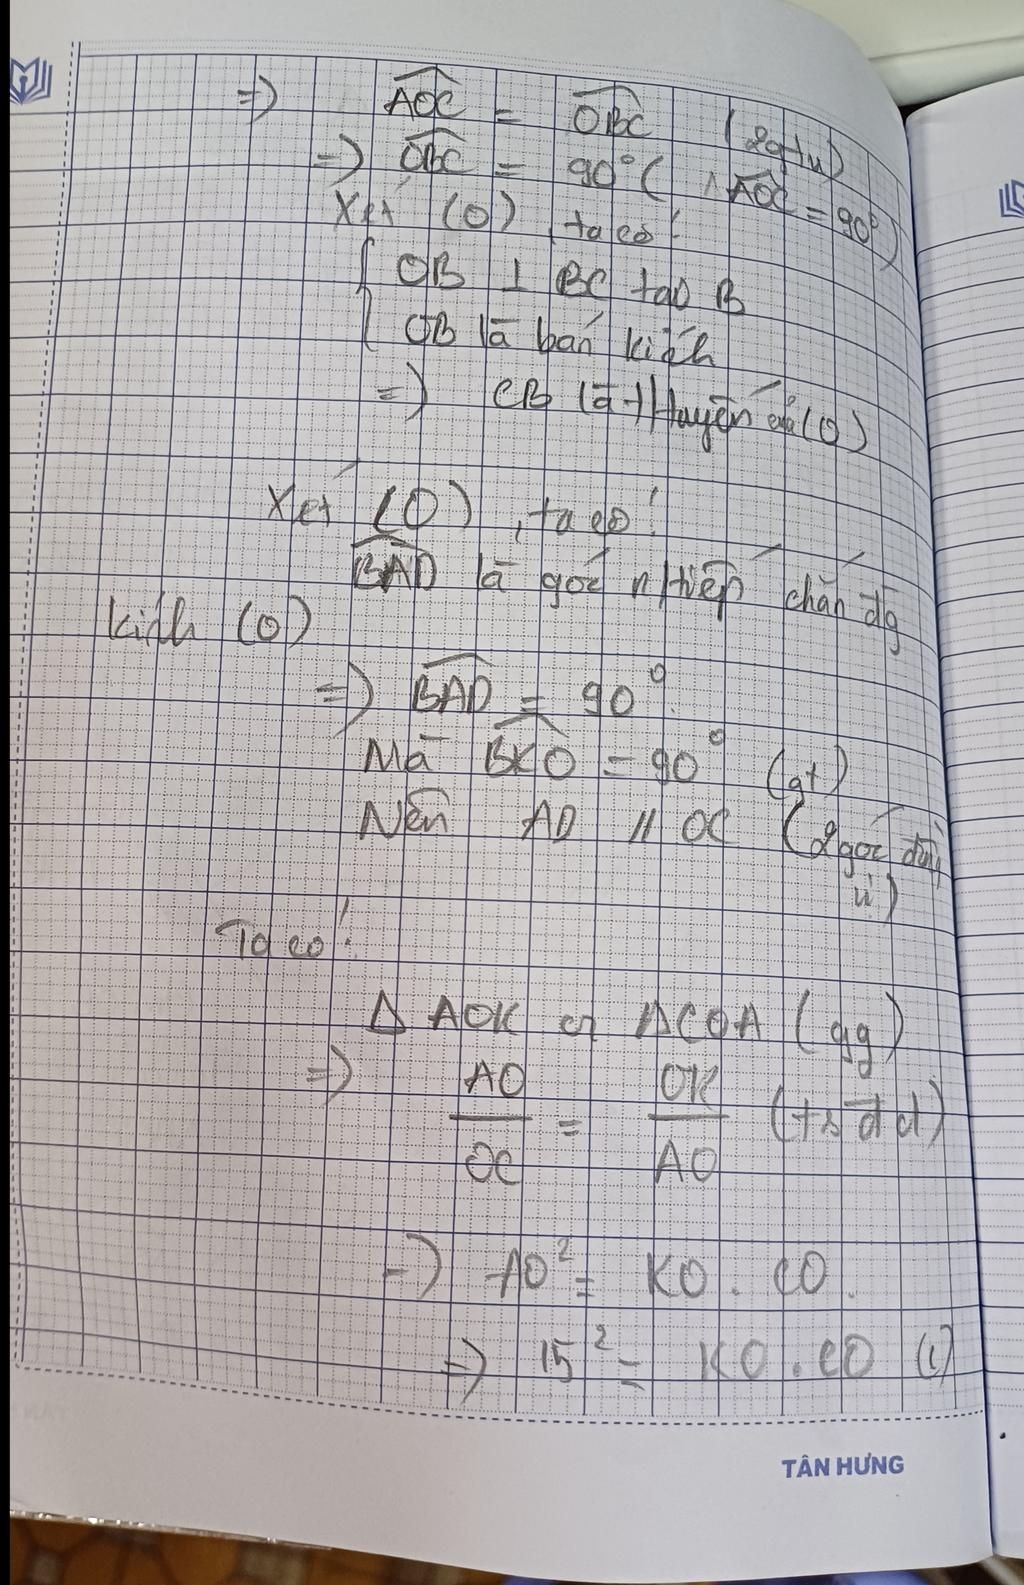 => AOC = OBC (2gtư)
=> OBC = 90° ( AOC = 90°)
Xét (O), ta có:
OB ⊥ BC tại B
OB là bán kính
=> CB là ttuyến của (O)
Xét (O), ta có:
BAD là góc ntiếp chắn đg
kính (O)
=> BAD = 90°.
Mà BKO = 90° (gt)
Nên AD // OC (2 góc
vị)
Ta có:
Δ AOK ∽ ΔCOA (gg)
=> AO/OC = OK/AO (tsđd)
=> AO² = KO . CO.
=> 15² = KO . CO (1)
TÂN HƯNG